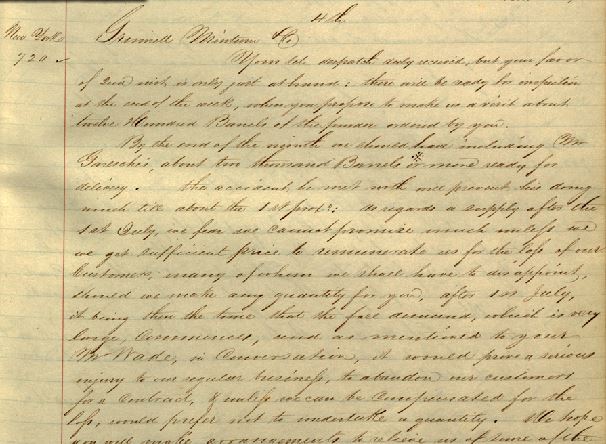 4th
New York
720
Grinnell Minturn & Co
Your tel. despatch duly received, but your favor
of 2nd inst. is only just at hand: there will be ready for inspection
at the end of the week, when you propose to make us a visit about
twelve Hundred Barrels of the powder ordered by you.
By the end of the month we should have including Wm
Garesché's, about ten thousand Barrels or more ready for
delivery. The accident he met with will prevent his doing
much till about the 1st prox: As regards a supply after the
1st July, we fear we cannot promise much unless we
we get sufficient price to remunerate us for the loss of our
Customers, many of whom we shall have to disappoint,
should we make any quantity for you, after 1st July,
it being then the time that the fall demand, which is very
large, commences, and as mentioned to your
Mr Wade, in Conversation, it would prove a serious
injury to our regular business, to abandon our customers
for a Contract, & unless we can be compensated for the
loss, would prefer not to undertake a quantity. We hope
you will make arrangements to relieve us of some of the